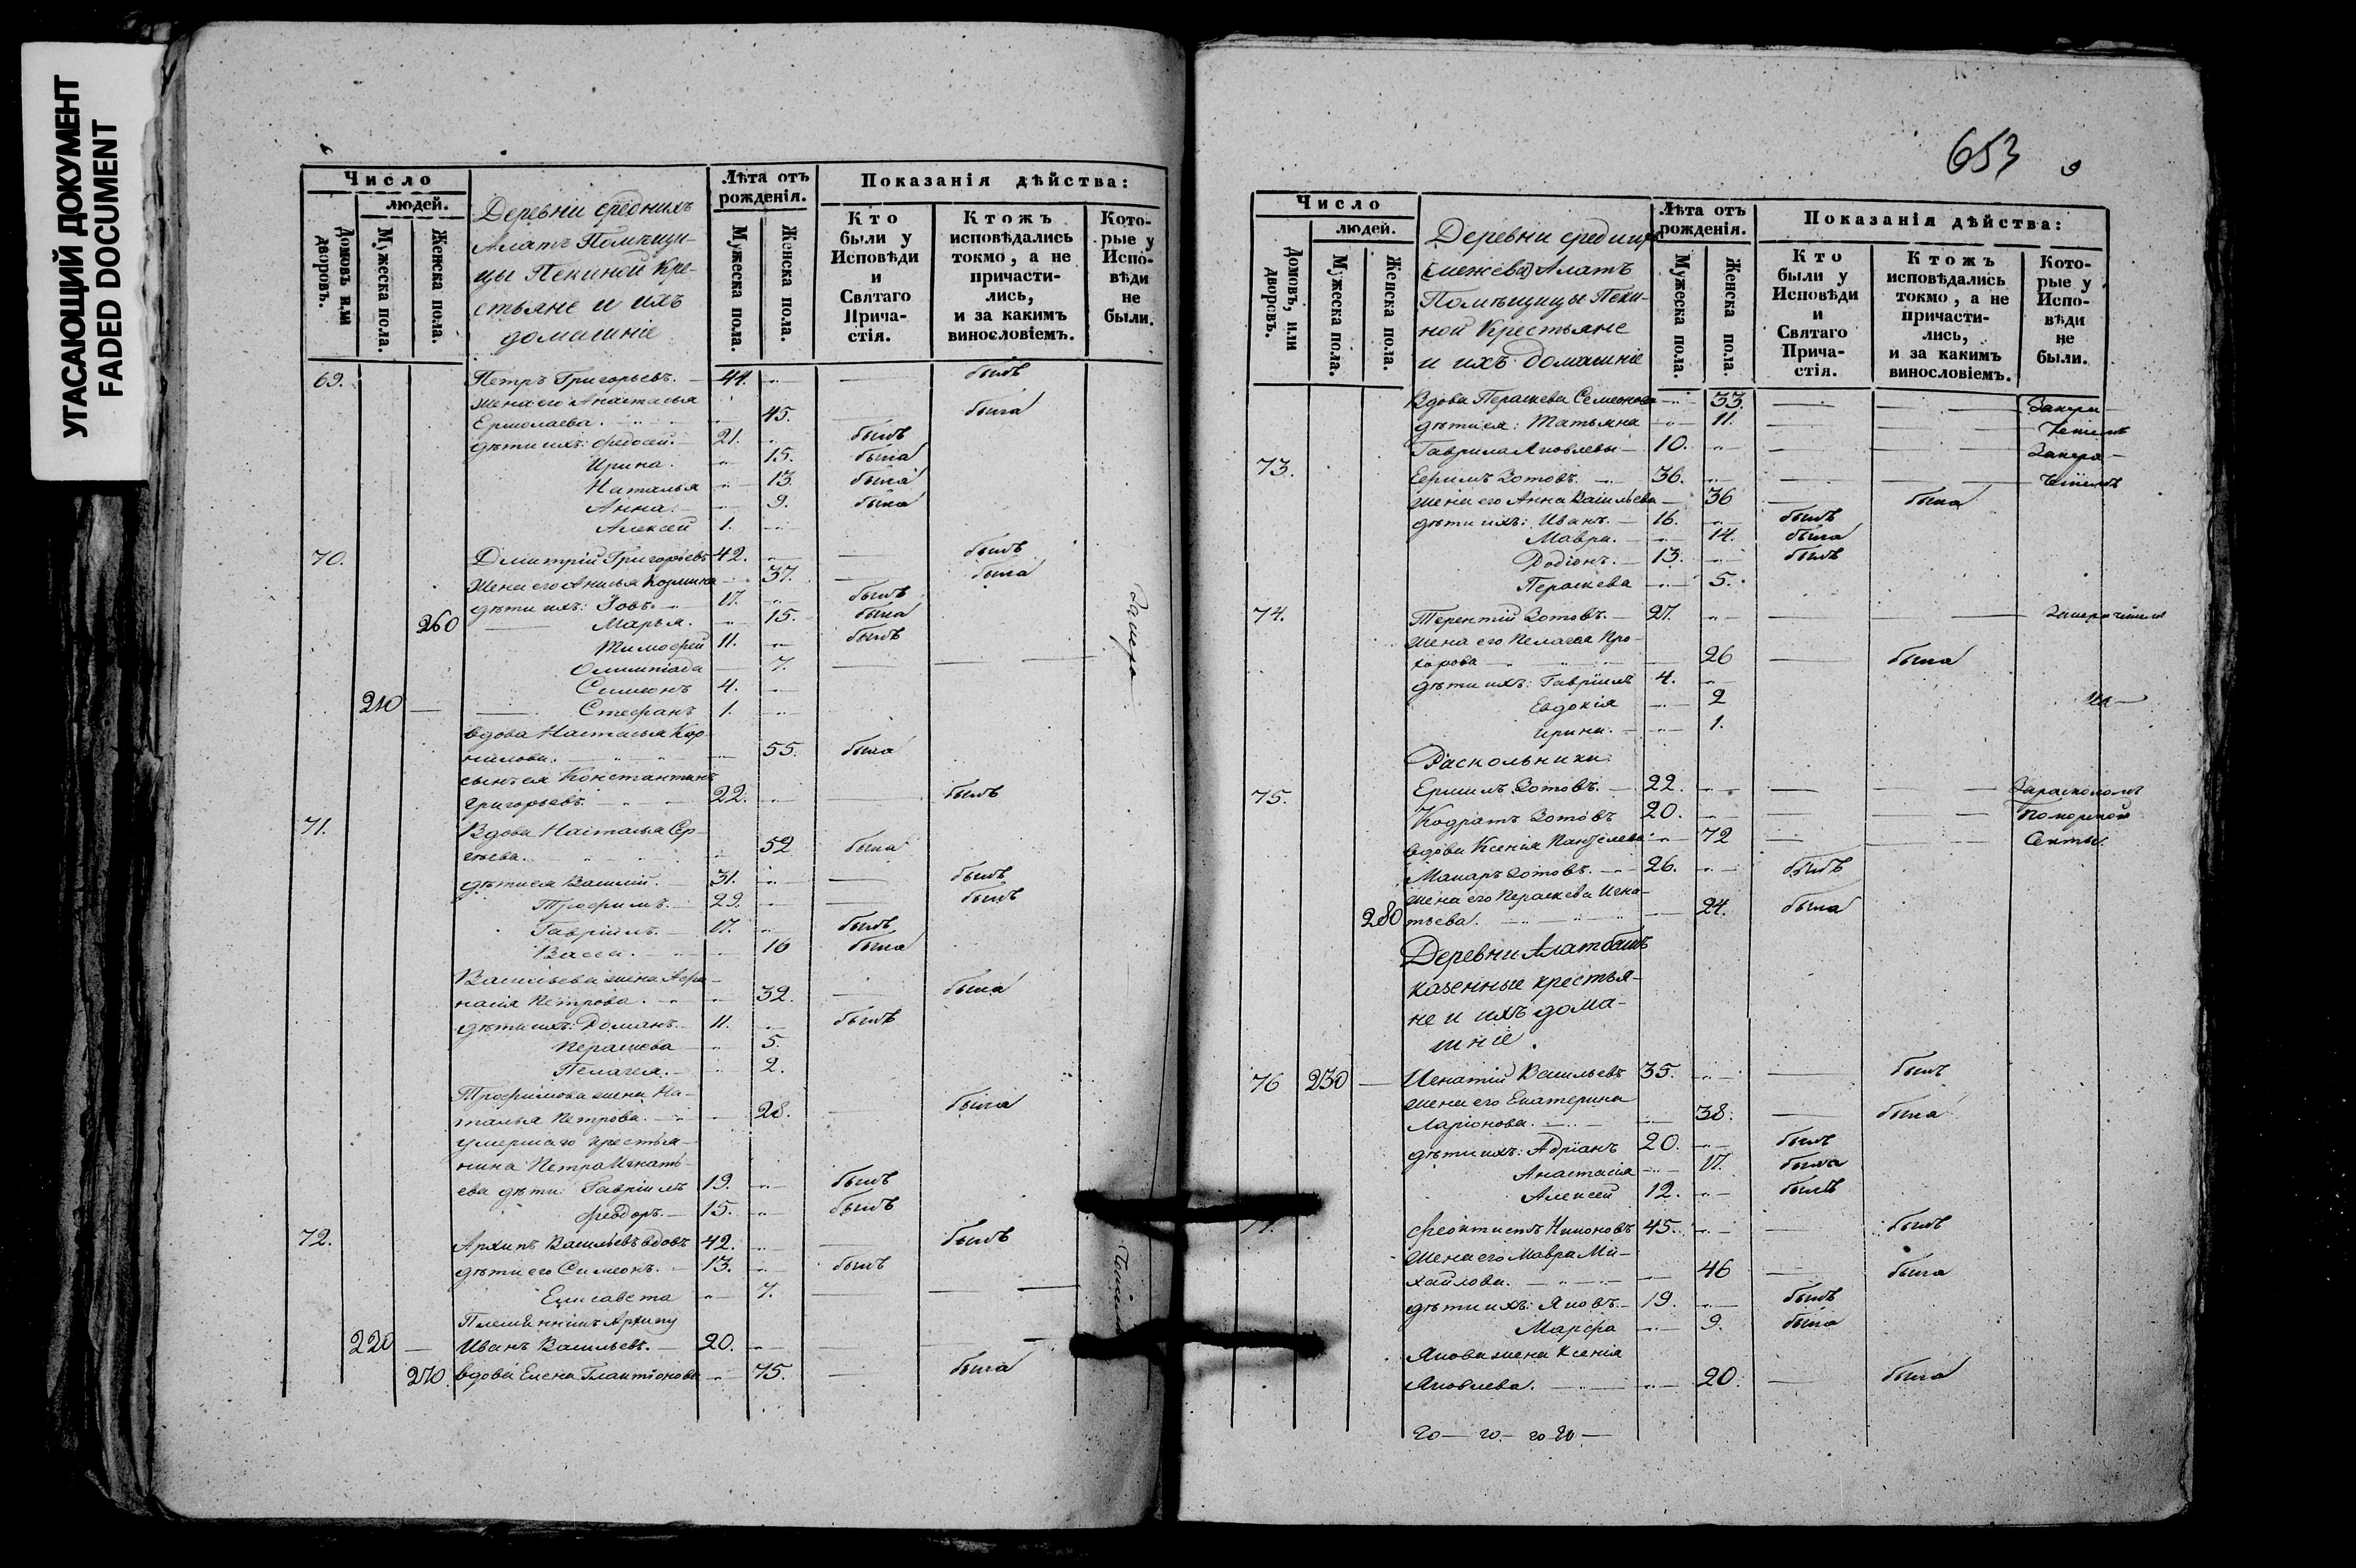 УГАСАЮЩИЙ ДОКУМЕНТ
FADED DOCUMENT
Число
людей.
Домовъ или дворовъ.
Мужеска пола.
Женска пола.
Деревни среднихъ
Алатъ Помѣщи-
цы Пекиной Кре-
стьяне и ихъ
домашніе
Лѣта отъ рожденія.
Мужеска пола.
Женска пола.
Показанія дѣйства:
Кто были у Исповѣди и Святаго Прича-стія.
Ктожъ исповѣдались токмо, а не причасти-лись, и за какимъ винословіемъ.
Кото-рые у Испо-вѣди не были.
69. Петръ Григорьевъ. 44. былъ
жена его Анастасья
Ермолаева. 45. была
дѣти ихъ: Федосей. 21. былъ
Ирина. 15. была
Наталья 13. была
Анна. 9. была
Алексей 1.
70. Димитрій Григорьевъ 42. былъ
жена его Анисья Козмина 37. была
дѣти ихъ: Іовъ. 17. былъ
260 Марья. 15. была
Тимофей 11. былъ
Олимпіада 7.
Симеонъ 4.
210 Стефанъ 1.
вдова Настасья Кор-
нилова. 55. была
сынъ ея Константинъ
Григорьевъ. 22. былъ
71. Вдова Настасья Сер-
гѣева. 52 была
дѣти ея Василій. 31. былъ
Трофимъ. 29. былъ
Гавріилъ. 17. былъ
Васса. 16 была
Васильева жена Афа-
насія Петрова. 32. была
дѣти ихъ: Романъ. 11. былъ
Перасковa 5.
Пелагея. 2.
Трофимова жена На-
талья Петрова. 28. была
умершаго крестья-
нина Петра Игнать-
ева дѣти: Гавріилъ 19. былъ
Феодоръ. 15. былъ
72. Архипъ Васильевъ вдовъ 42. былъ
дѣти его Симеонъ. 13. былъ
Елисавета 7.
Племянникъ Архипу
220 Иванъ Васильевъ. 20.
270. вдова Елена Галактіонова 75. была
653
9
Число
людей.
Домовъ, или дворовъ.
Мужеска пола.
Женска пола.
Деревни среднихъ
Алатъ
Помѣщицы Пеки-
ной Крестьяне
и ихъ домашніе
Лѣта отъ рожденія.
Мужеска пола.
Женска пола.
Показанія дѣйства:
Кто были у Исповѣди и Святаго Прича-стія.
Ктожъ исповѣдались токмо, а не причасти-лись, и за какимъ винословіемъ.
Кото-рые у Испо-вѣди не были.
Вдова Перасковa Семенова 33.
дѣти ея: Татьяна 11.
Гаврила Яковлевы 10.
73. Ефимъ Зотовъ. 36.
жена его Анна Васильева 36 была
дѣти ихъ: Иванъ. 16. былъ
Мавра. 14. была
Родіонъ. 13. былъ
Перасковa 5.
74. Терентій Зотовъ. 27.
жена его Пелагея Про-
хорова 26 была
дѣти ихъ: Гавріилъ 4.
Евдокія 2
Ирина. 1.
Раскольники:
75. Ермилъ Зотовъ. 22. За расколомъ
Кодратъ Зотовъ 20. Поморской
вдова Ксенія Панфилова 72 Секты.
Макаръ Зотовъ. 26. былъ
жена его Перасковa Игна-
280 тьева. 24. была
Деревни Алатбашъ
казенные крестья-
не и ихъ дома-
шніе.
76 230 Игнатій Васильевъ 35. былъ
жена его Екатерина
Ларіонова. 38. была
дѣти ихъ: Адріанъ 20. былъ
Анастасія 17. была
Алексей 12. былъ
77. Феоктистъ Никоновъ 45. былъ
жена его Мавра Ми-
хайлова. 46 была
дѣти ихъ: Яковъ. 19. былъ
Марфа 9. была
Якова жена Ксенія
Яковлева. 20. была